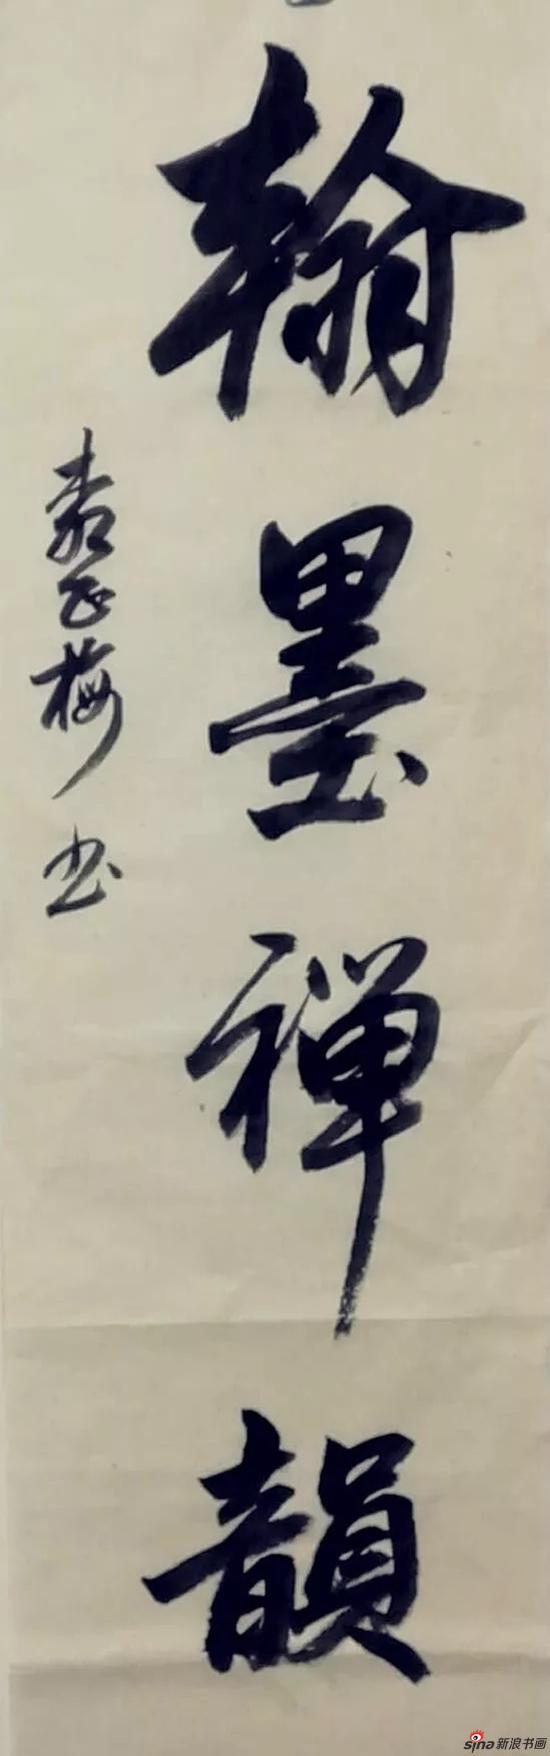 翰墨禪韻
梅书
sina新浪书画